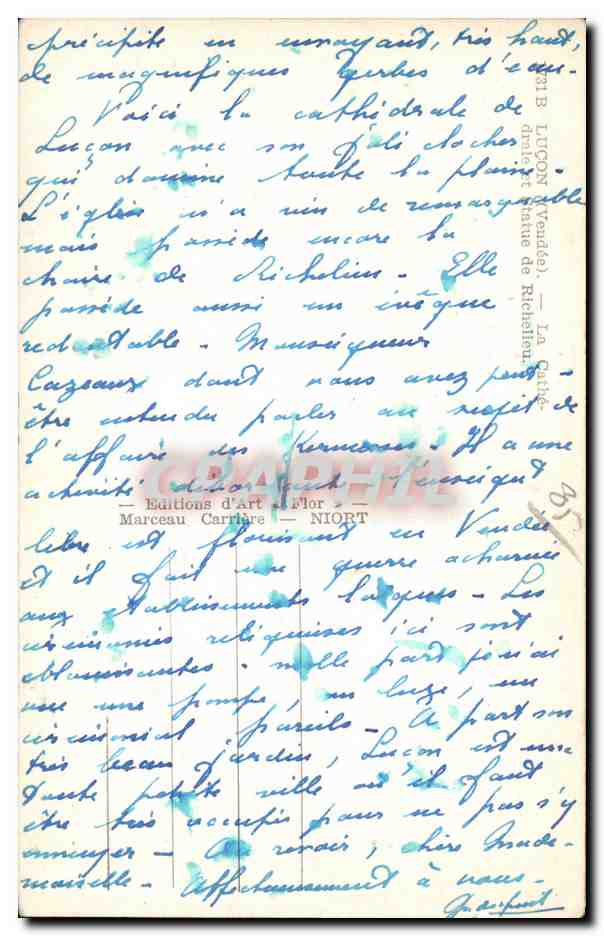 précipite en envoyant, très haut,
de magnifiques gerbes d'eau.
Voici la cathédrale de
Luçon avec son joli clocher
qui domine toute la plaine.
L'église n'a rien de remarquable
mais possède encore la
chaire de Richelieu. Elle
possède aussi un évêque
redoutable. Monseigneur
Cazeaux dont vous avez peut-
être entendu parler au sujet de
l'affaire des Kermesses. Il a une
activité débordante. L'enseigt
libre est florissant en Vendée
et il fait une guerre acharnée
aux établissements laïques. Les
cérémonies religieuses ici sont
éblouissantes. nulle part je n'ai
vu une pompe, un luxe, un
cérémonial pareils. A part son
très beau jardin, Luçon est une
toute petite ville où il faut
être très occupés pour ne pas s'y
ennuyer — Au revoir, chère Made-
moiselle. Affectueusement à vous.
— Editions d'Art « Flor » —
Marceau Carrière — NIORT
731 B LUÇON (Vendée). — La Cathé-
drale et Statue de Richelieu.
35
GRAPHIL